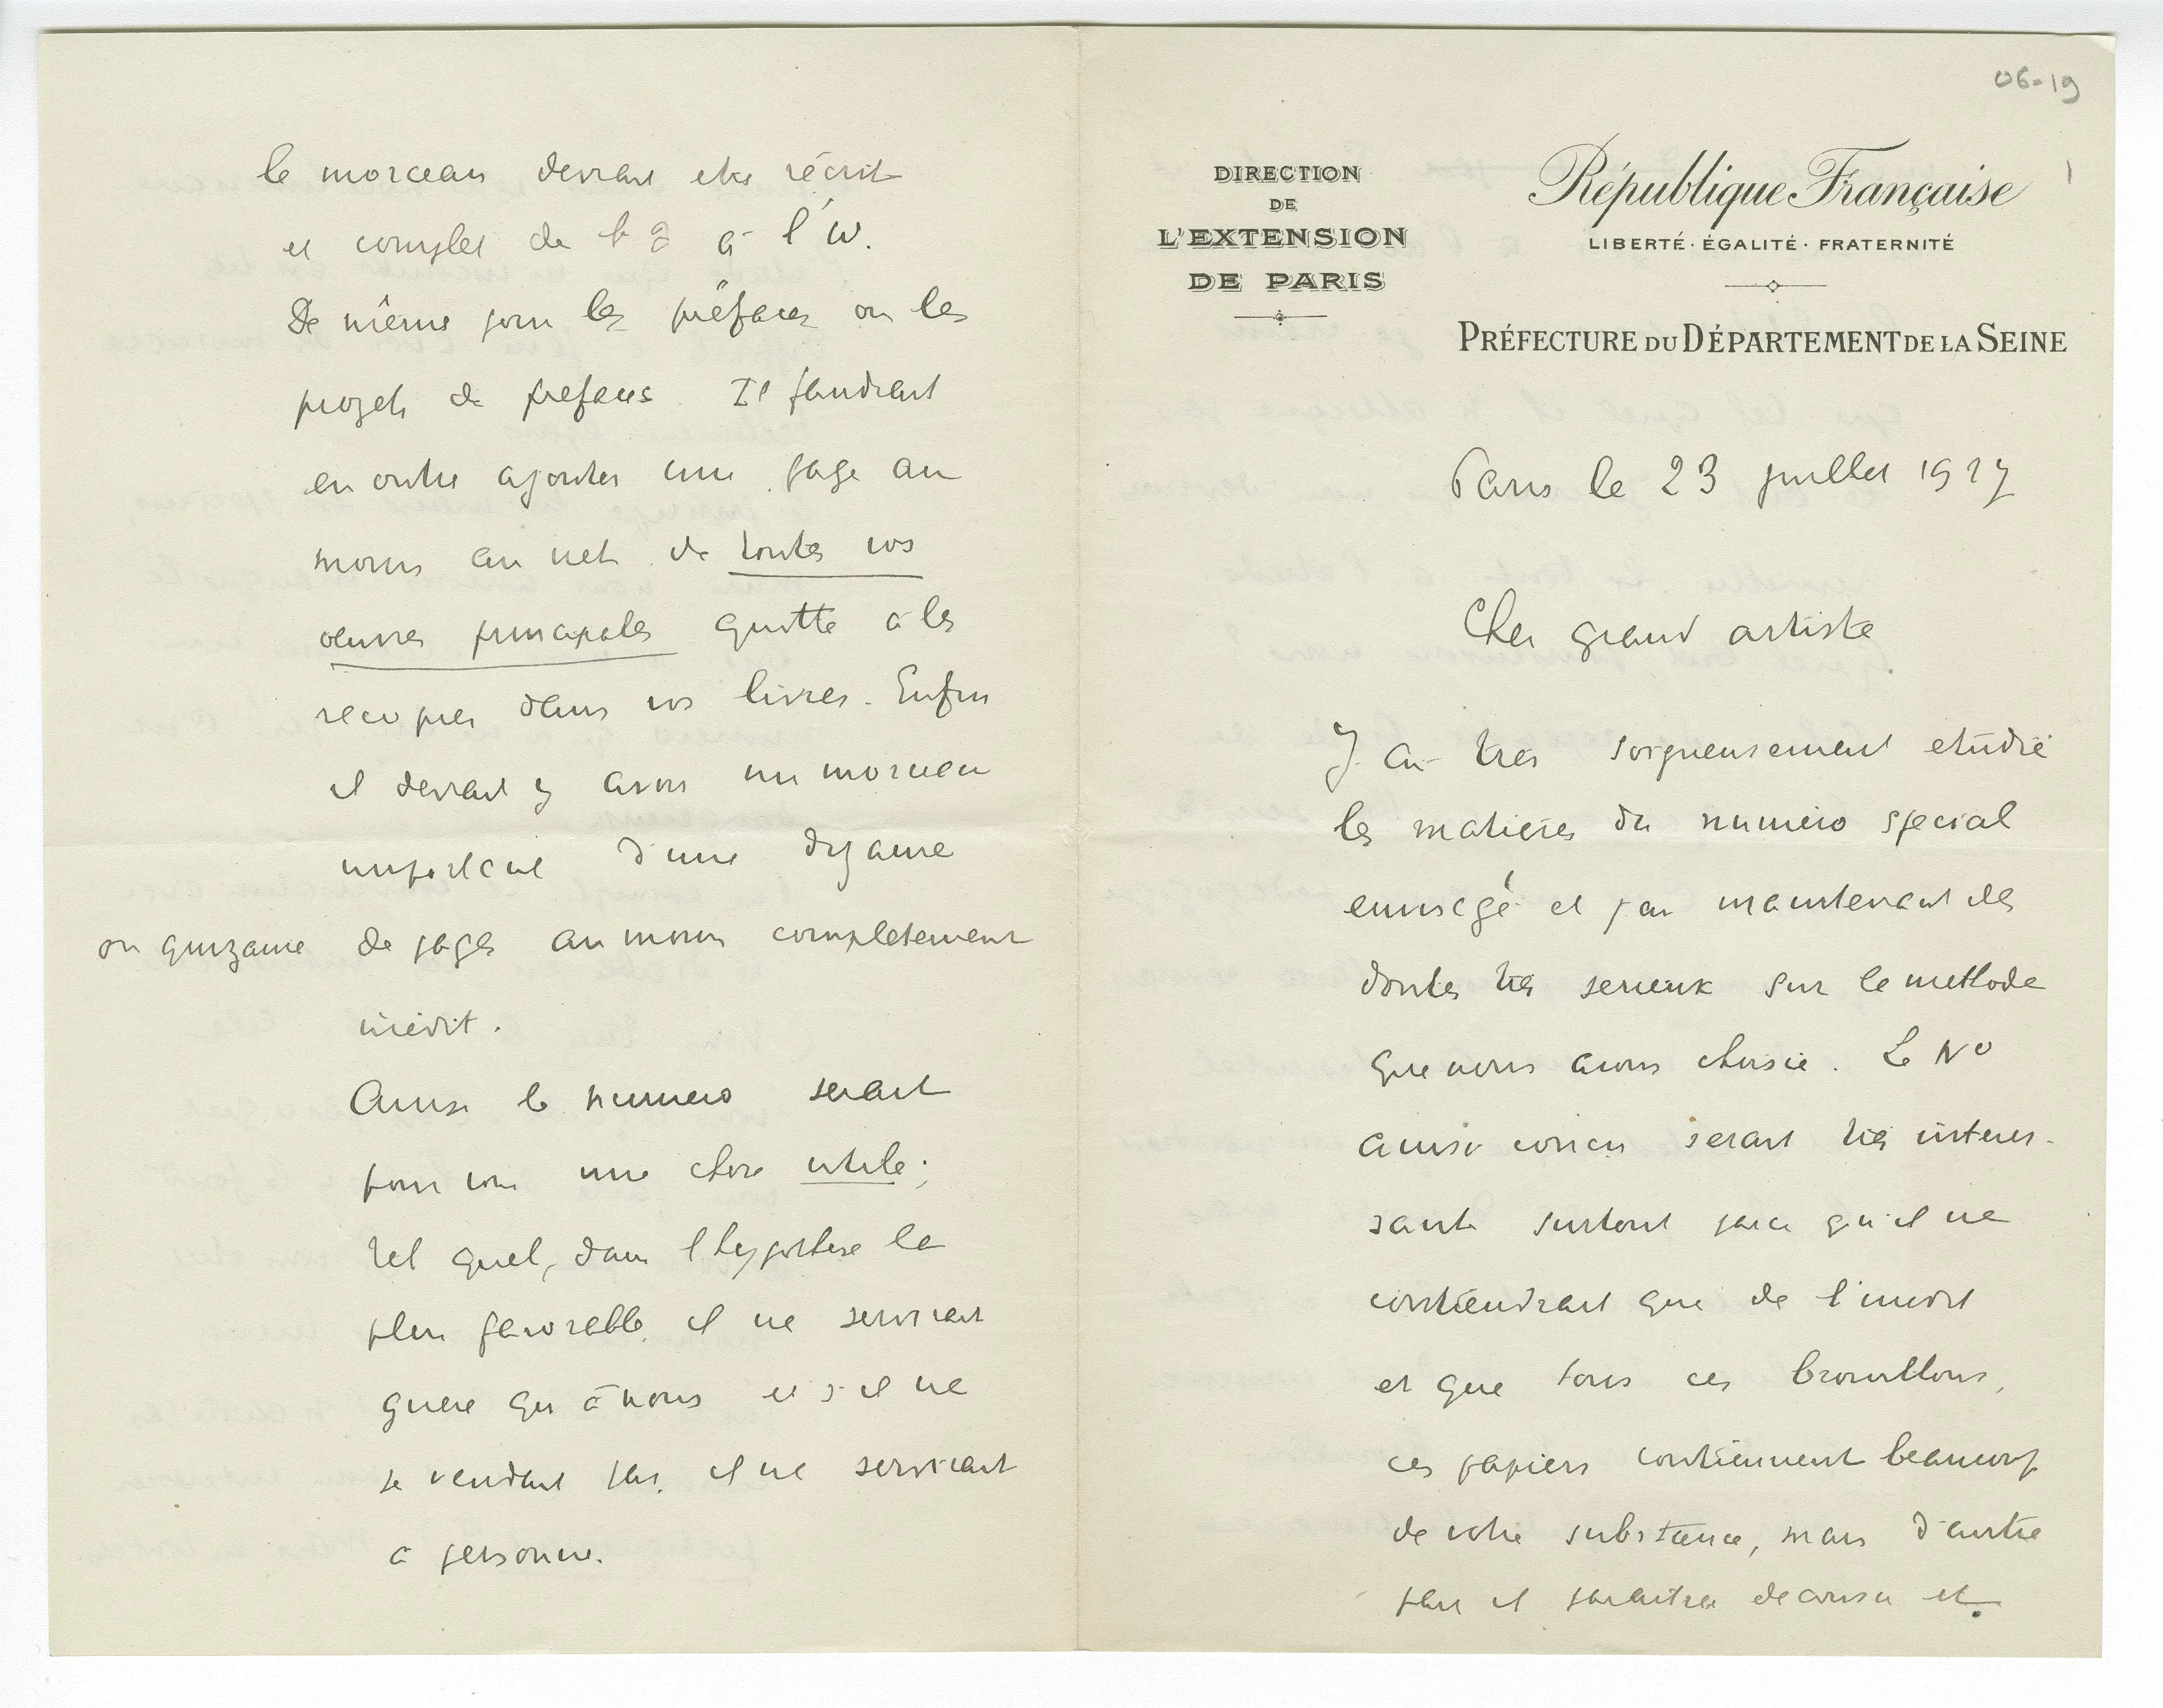 06-19
DIRECTION
DE
L'EXTENSION
DE PARIS
République Française
LIBERTÉ · ÉGALITÉ · FRATERNITÉ
PRÉFECTURE DU DÉPARTEMENT DE LA SEINE
Paris le 23 juillet 1927
Cher grand artiste
J'ai très soigneusement etudié
les matieres du numéro special
envisagé et j'ai maintenant des
doutes très serieux sur la methode
que nous avons choisie. Le No
ainsi concu serait très interes-
sant surtout parce qu'il ne
contiendrait que de l'inedit
et que tous ces brouillons,
ces papiers contiennent beaucoup
de votre substance, mais d'autre
part il paraitra decousu et
le morceau devrait etre récrit
et complet de l' à l'ω.
De même pour les préfaces ou les
projets de prefaces. Il faudrait
en outre ajouter une page au
moins au net de toutes vos
oeuvres principales quitte à les
recopier dans vos livres. Enfin
il devrait y avoir un morceau
important d'une dizaine
ou quinzaine de pages au moins completement
inédit.
Ainsi le numero serait
pour vous une chose utile ;
tel quel, dans l'hypothese la
plus favorable, il ne servirait
guere qu'à nous et s'il ne
se vendait pas, il ne servirait
à personne.